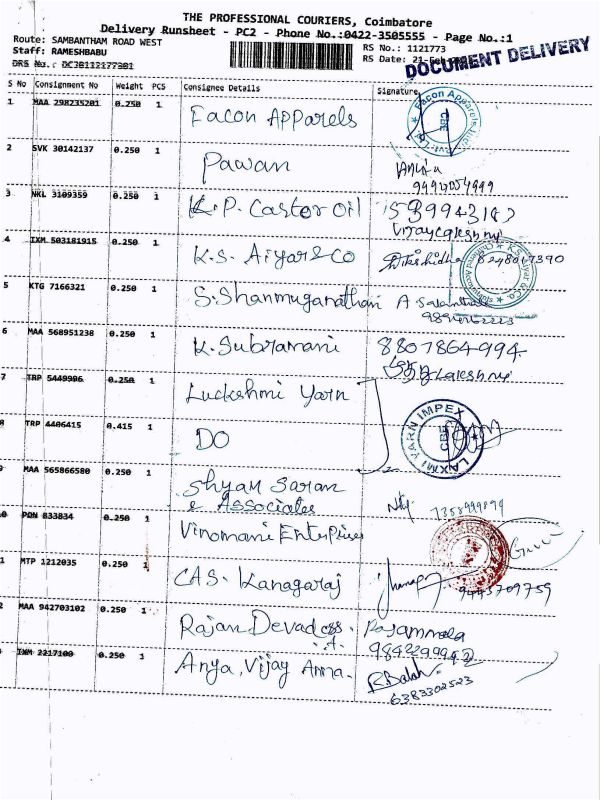 THE PROFESSIONAL COURIERS, Coimbatore
Delivery Runsheet - PC2 - Phone No.:0422-3505555 - Page No.:1
Route: SAMBANTHAM ROAD WEST
Staff: RAMESHBABU
DRS No.: DC3B112177301
RS No.: 1121773
RS Date: 21-Feb
DOCUMENT DELIVERY
S No Consignment No Weight PCS Consignee Details Signature
1 MAA 298235201 0.250 1 Eacon Apparels
Eacon Apparels
2 SVK 30142137 0.250 1 Pawan
3 NKL 3109359 0.250 1 K.P. Castor oil
Vijayalakshmi
4 IXM 503181915 0.250 1 K.S. Aiyar & Co
8248017390
5 KTG 7166321 0.250 1 S. Shanmuganathan
6 MAA 568951238 0.250 1 K. Subramani 8807864994
7 TRP 5449986 0.250 1 Luckshmi Yarn
8 TRP 4406415 0.415 1 DO
LAXMI YARN IMPEX
CBE
MAA 565866580 0.250 1 Shyam Saran
& Associates
7358999899
PON 833834 0.250 1 Vinomani Enterprises
MTP 1212035 0.250 1 CAS. Kanagaraj
9443709759
MAA 942703102 0.250 1 Rajan Devadoss. Rajammala
IXM 2217100 0.250 1 Anya, Vijay Anna. R. Balah
6383302523